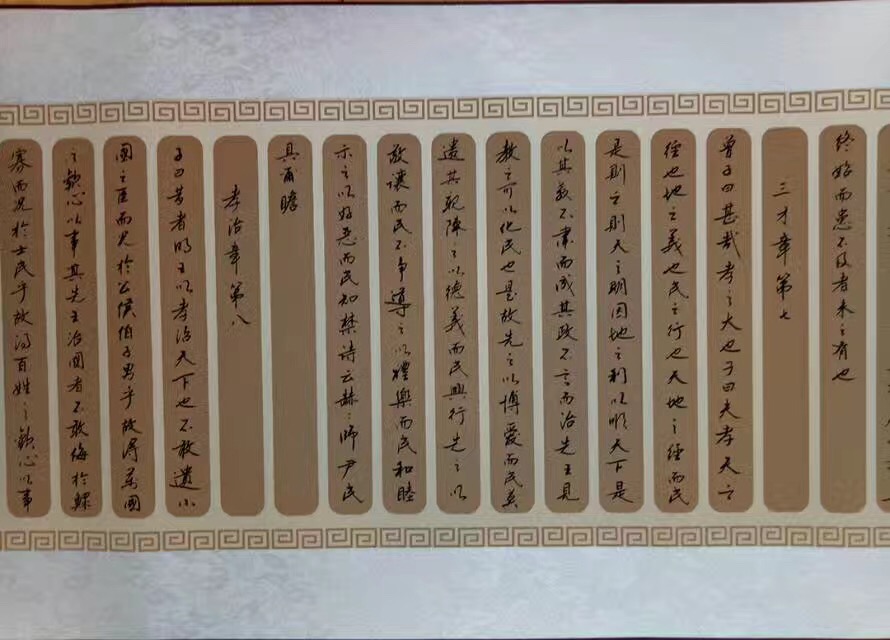 終始而患不及者未之有也
三才章第七
曾子曰甚哉孝之大也子曰夫孝天之
經也地之義也民之行也天地之經而民
是則之則天之明因地之利以順天下是
以其教不肅而成其政不言而治先王見
教之可以化民也是故先之以博愛而民莫
遺其親陳之以德義而民興行先之以
敬讓而民不爭導之以禮樂而民和睦
示之以好惡而民知禁詩云赫赫師尹民
具甫瞻
孝治章第八
子曰昔者明王以孝治天下也不敢遺小
國之臣而况於公侯伯子男乎故得萬國
之歡心以事其先王治國者不敢侮於鰥
寡而况於士民乎故得百姓之歡心以事